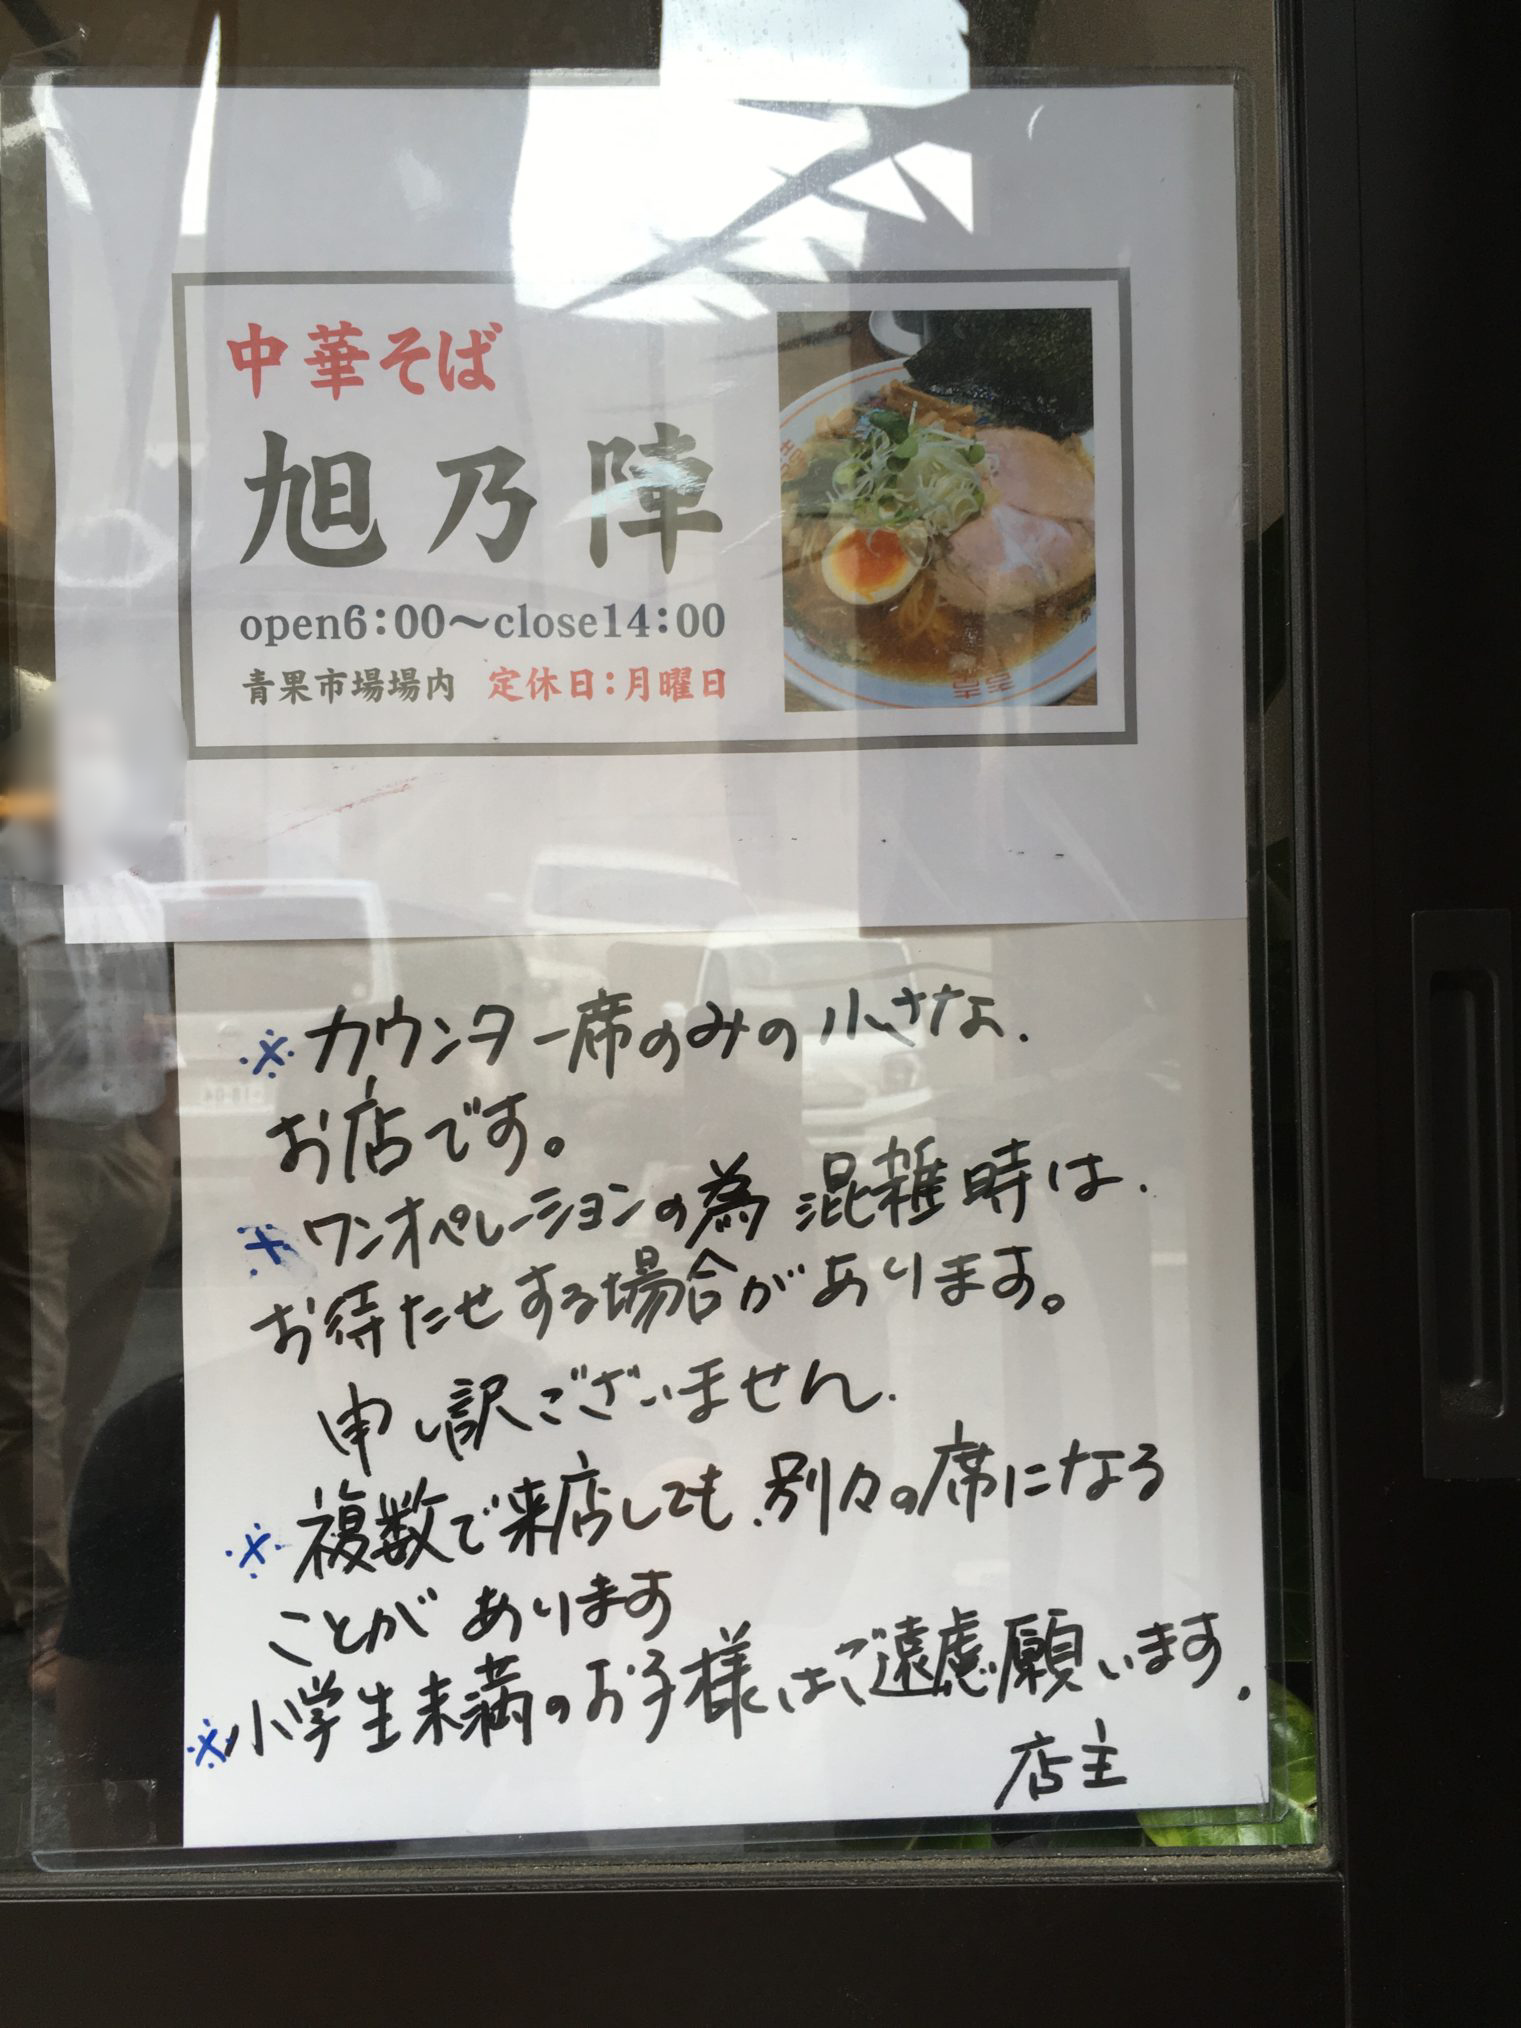 中華そば
旭乃陣
open6:00〜close14:00
青果市場場内 定休日:月曜日
※カウンター席のみの小さな、
お店です。
※ワンオペレーションの為 混雑時は、
お待たせする場合があります。
申し訳ございません。
※複数で来店しても、別々の席になる
ことがあります
※小学生未満のお子様はご遠慮願います。
店主